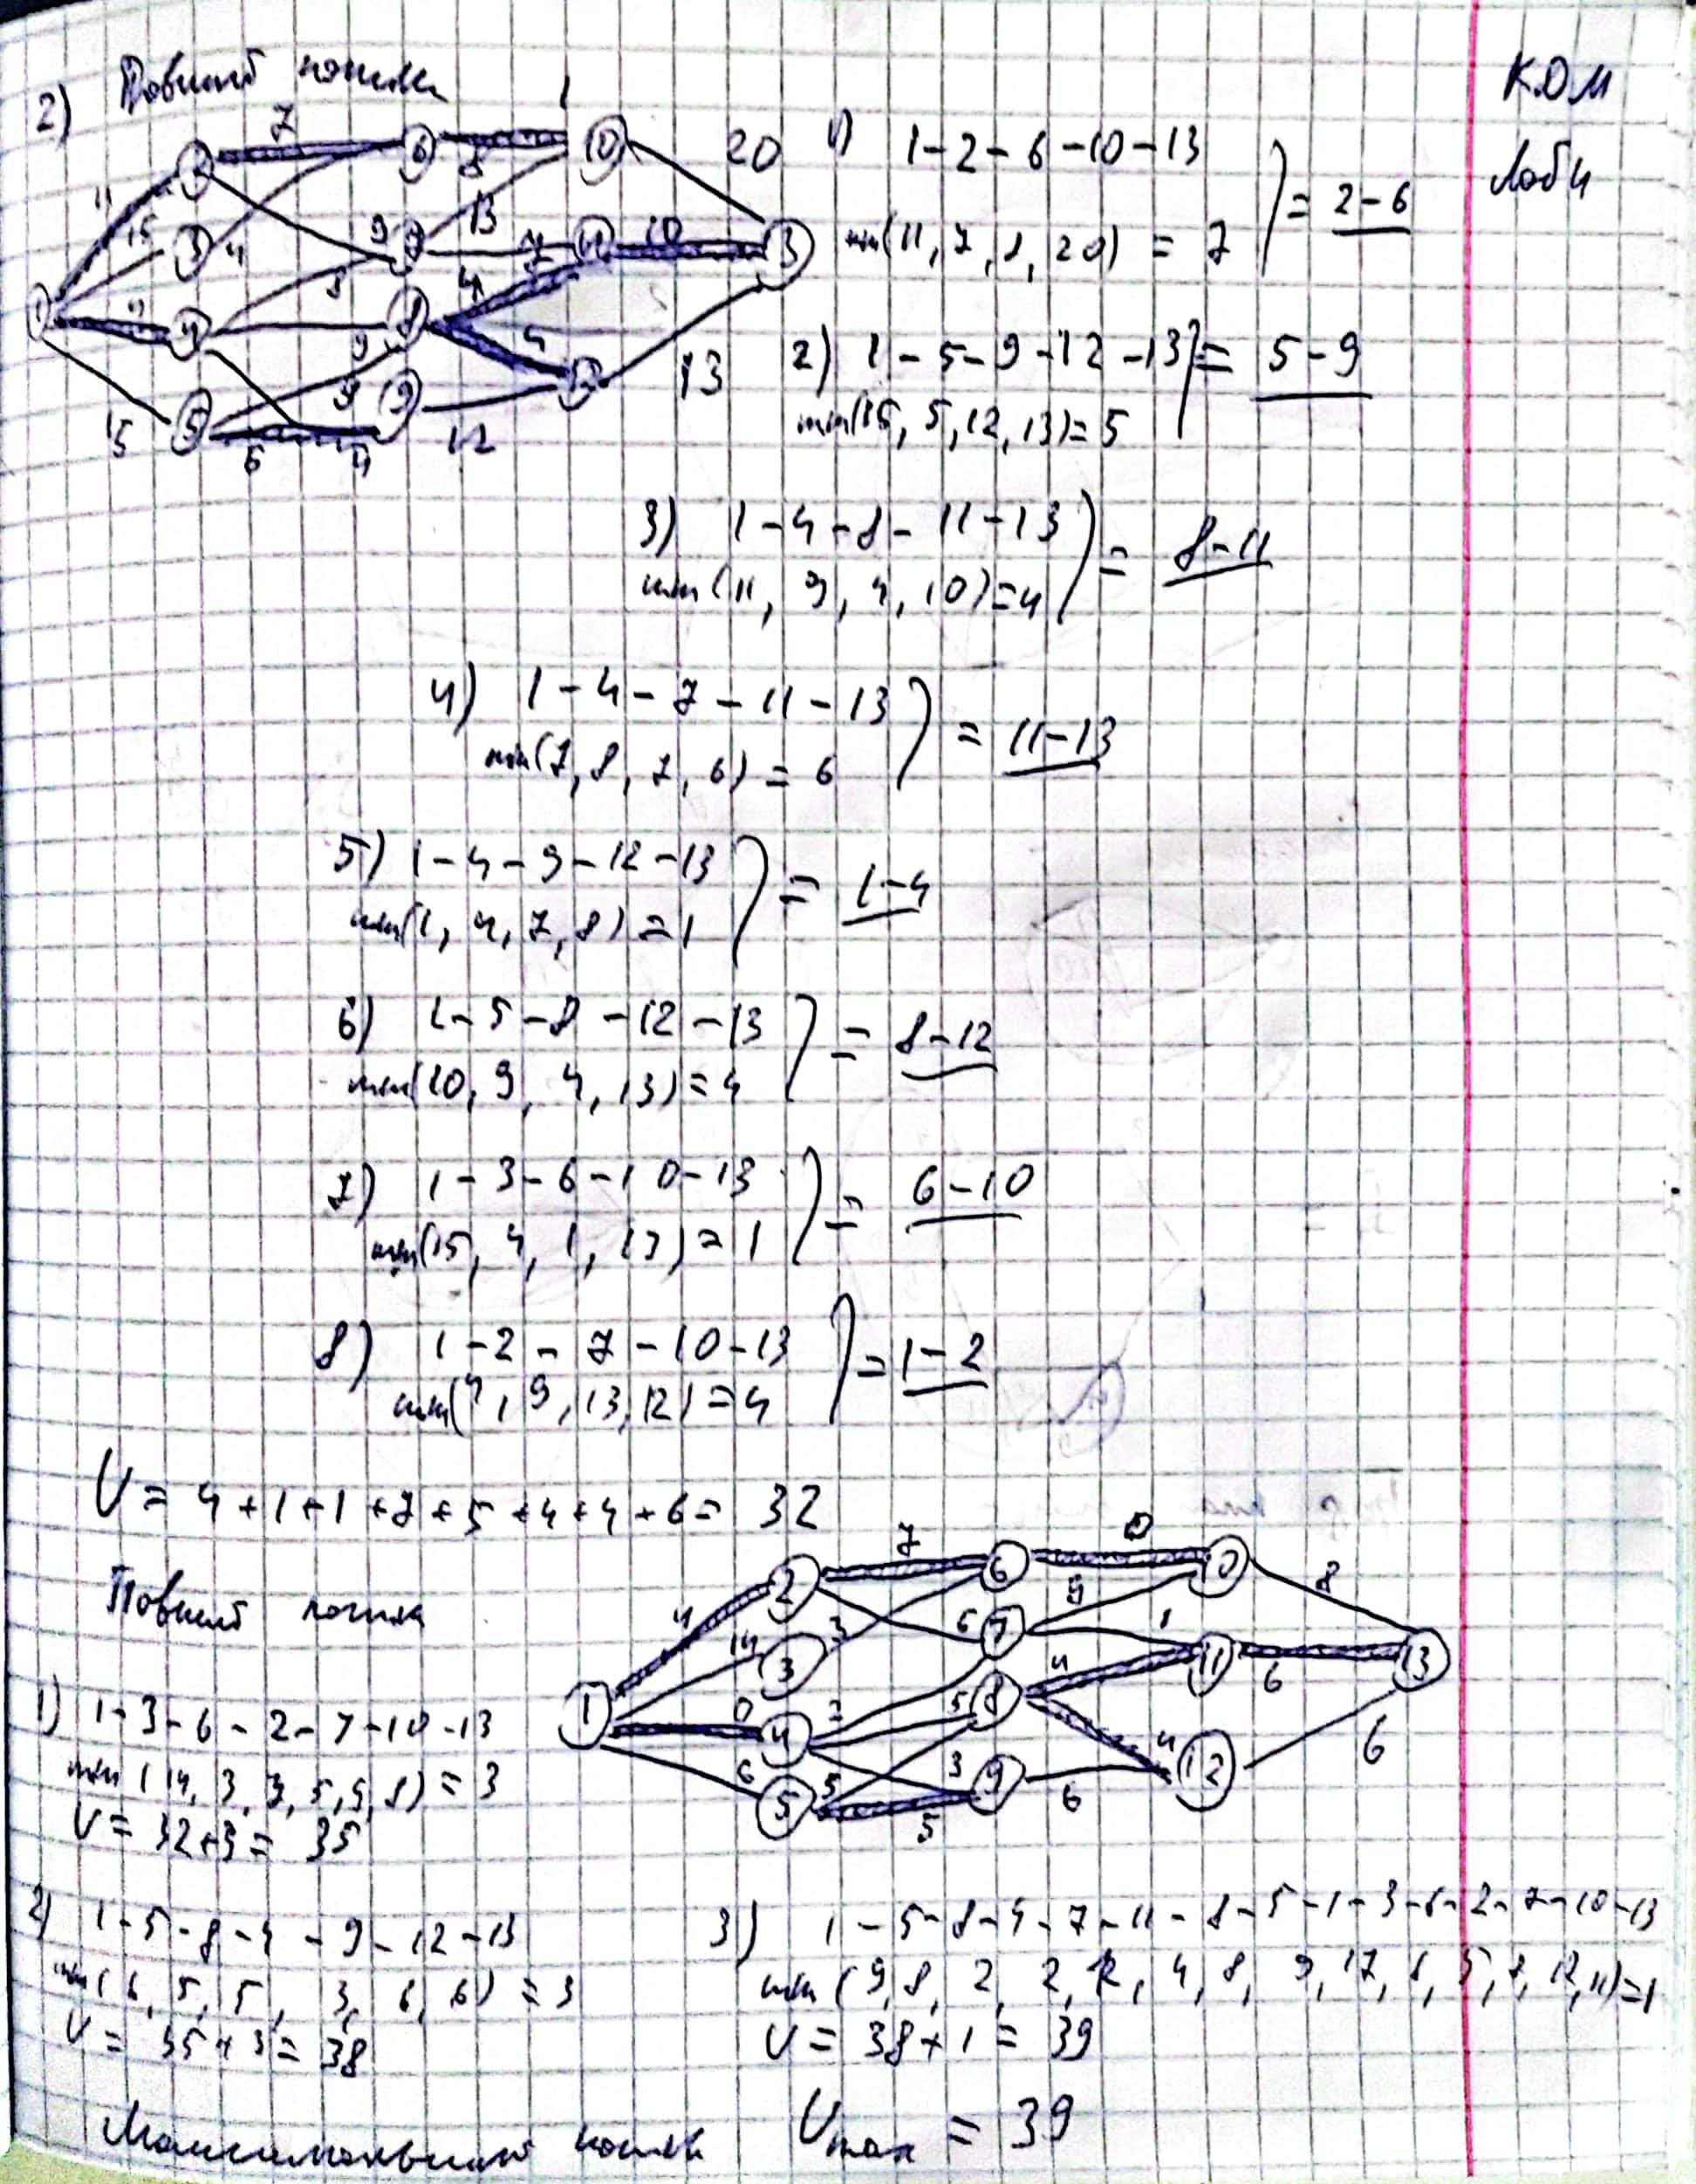 КОМ
Лаб 4
2) Повний потік
1) 1-2-6-10-13
min(11, 7, 8, 20) = 7 = 2-6
2) 1-5-9-12-13
min(15, 5, 12, 13) = 5 = 5-9
3) 1-4-8-11-13
min(11, 9, 4, 10) = 4 = 8-11
4) 1-4-7-11-13
min(7, 8, 7, 6) = 6 = 11-13
5) 1-4-9-12-13
min(1, 4, 7, 8) = 1 = 1-4
6) 1-5-8-12-13
min(10, 9, 4, 13) = 4 = 8-12
7) 1-3-6-10-13
min(15, 4, 1, 13) = 1 = 6-10
8) 1-2-7-10-13
min(4, 9, 13, 12) = 4 = 1-2
V = 4+1+1+7+5+4+4+6 = 32
Повний потік
1) 1-3-6-2-7-10-13
min(14, 3, 7, 5, 9, 8) = 3
V = 32+3 = 35
2) 1-5-8-4-9-12-13
min(6, 5, 5, 3, 6, 6) = 3
V = 35+3 = 38
3) 1-5-8-4-7-11-8-5-1-3-6-2-7-10-13
V = 38+1 = 39
Максимальний потік Vmax = 39